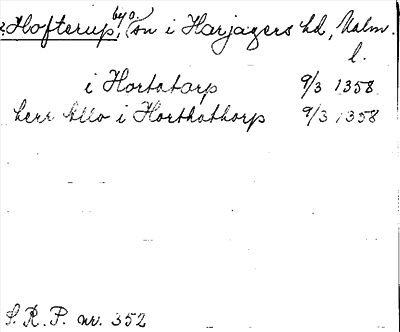 Hofterup, by o. sn i Harjagers hd, Malm.
l.
i Hortatorp 9/3 1358
herr Atto i Horthathorp 9/3 1358
S. R. P. nr. 352